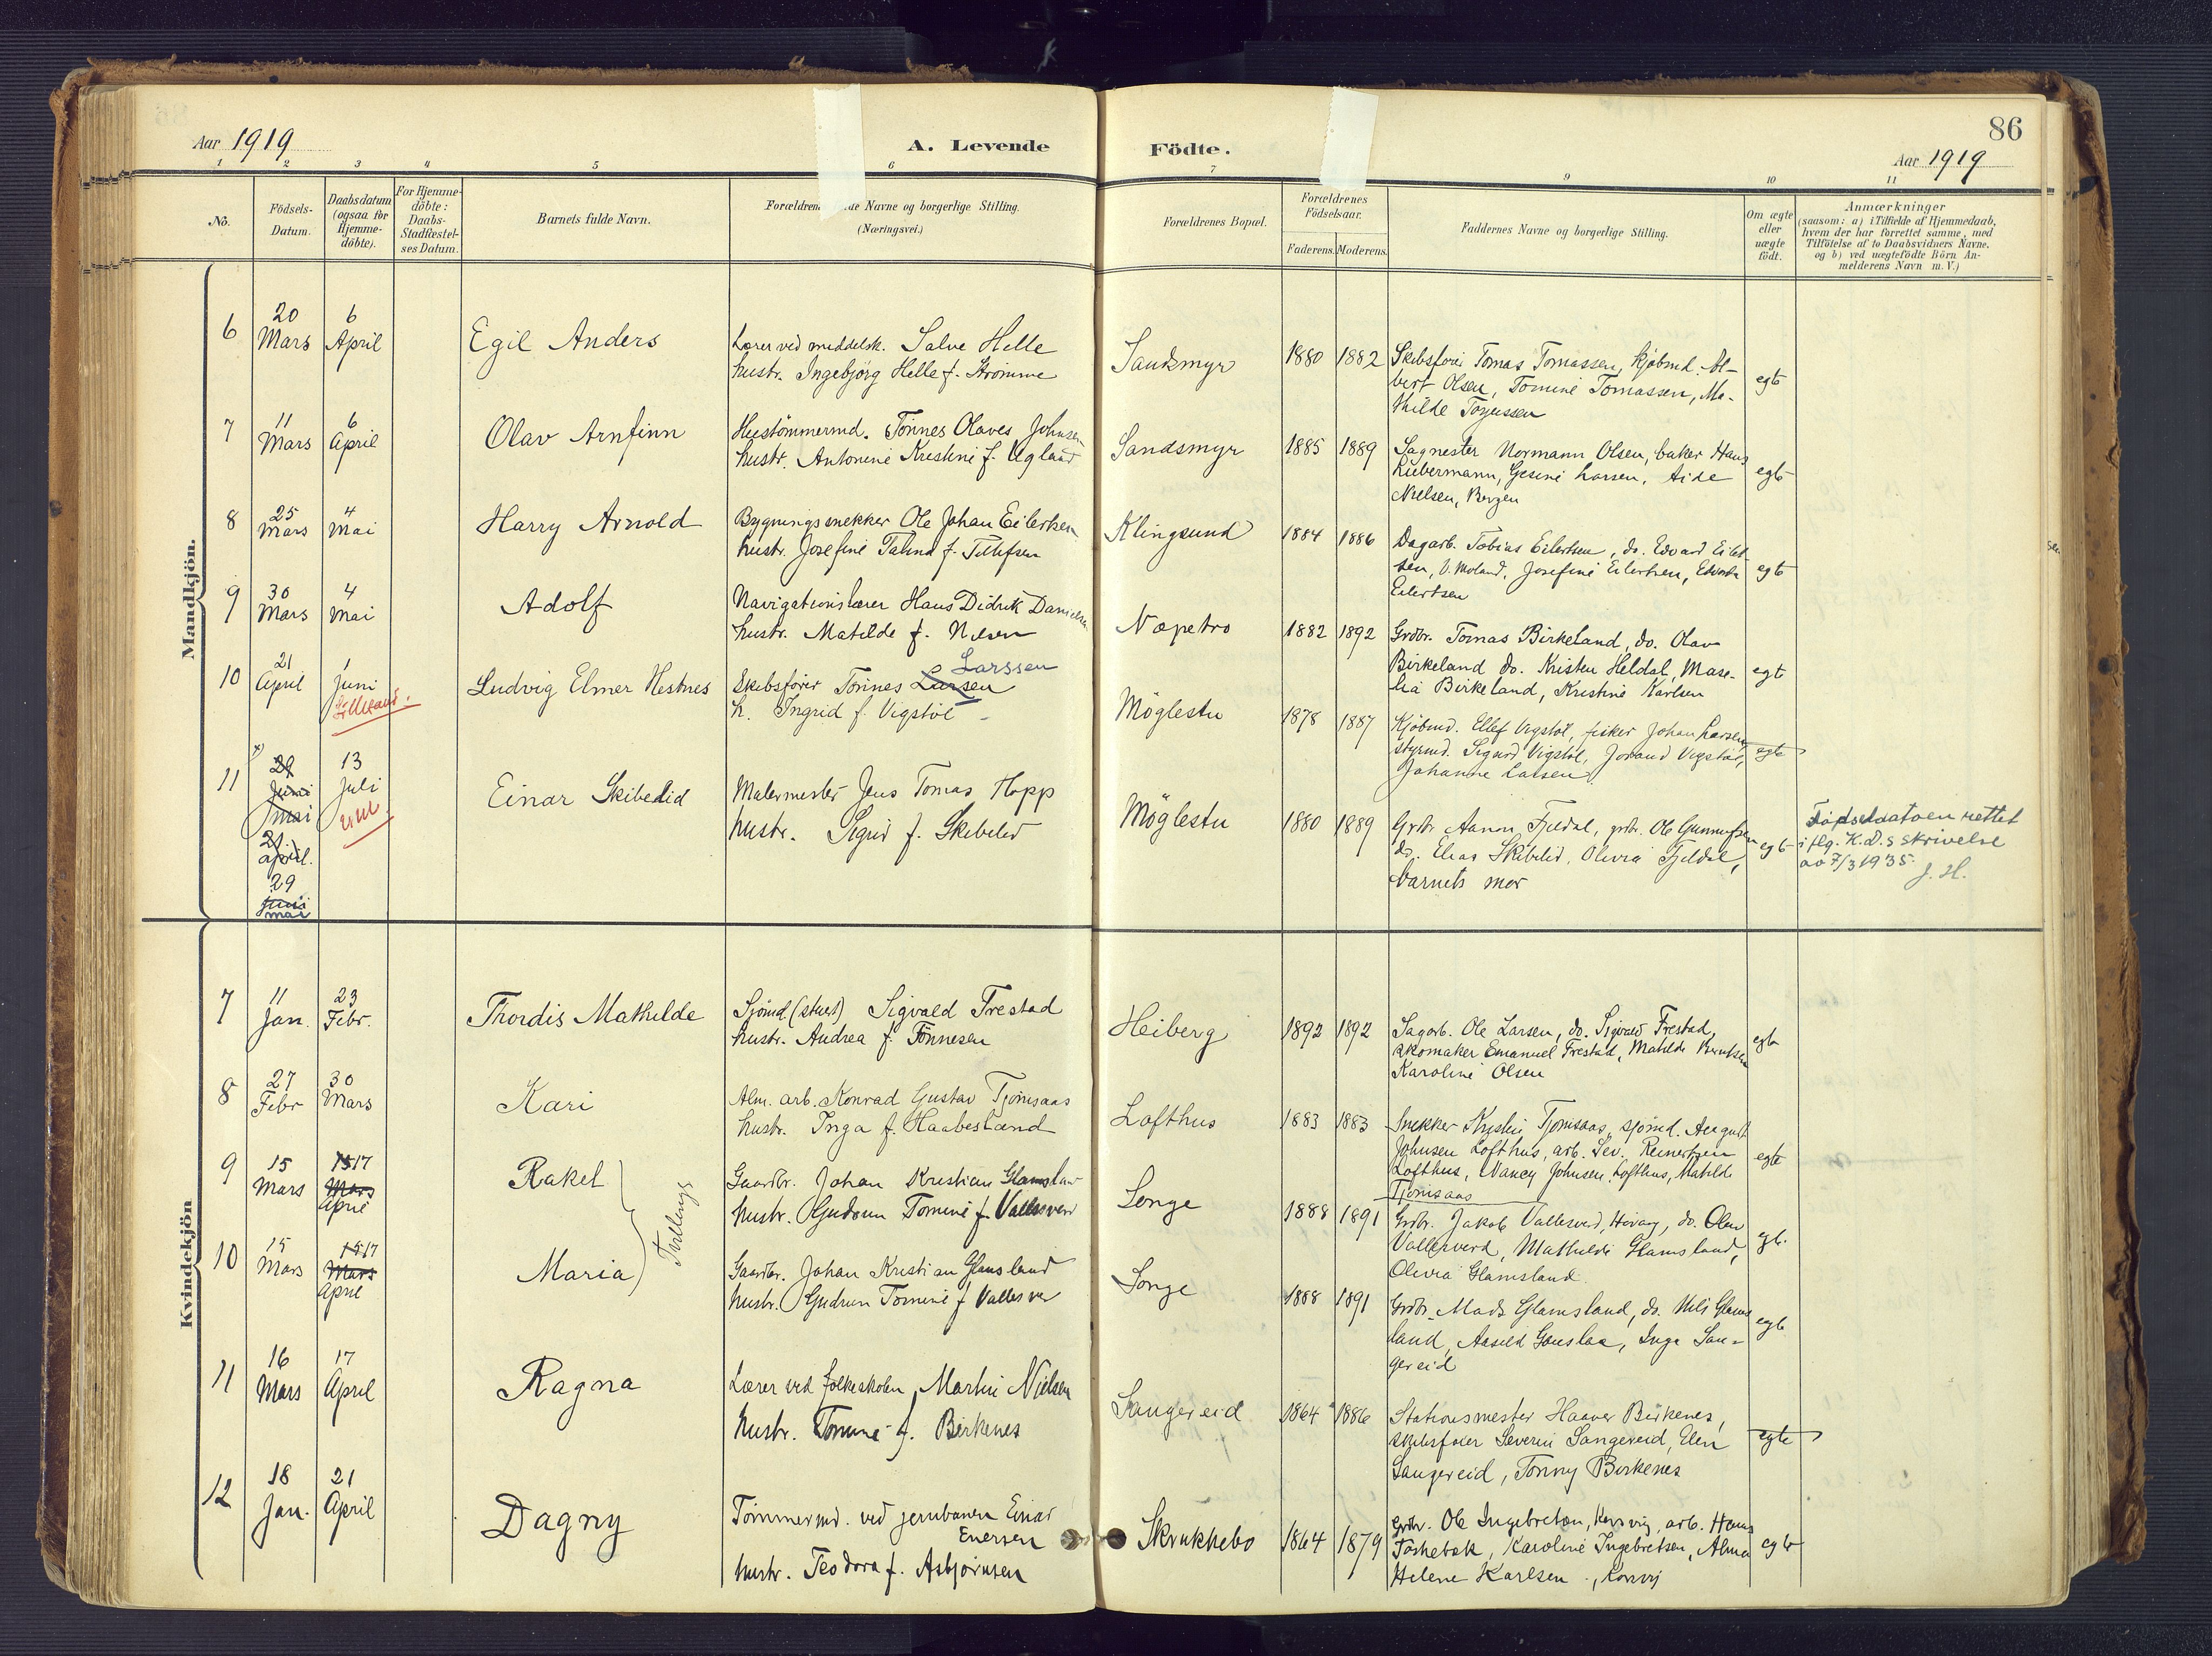 86
Aar 1919
A. Levende
Födte.
Aar 1919
1 2 3 4 5 6 7 9 10 11
No.
Födsels-Datum.
Daabsdatum (ogsaa for Hjemme-döbte).
For Hjemme-döbte: Daabs-Stadfæstel-ses Datum.
Barnets fulde Navn.
Navne og borgerlige Stilling. (Næringsvei.)
Forældrenes Bopæl.
Forældrenes Födselsaar.
Faderens. Moderens.
Faddernes Navne og borgerlige Stilling.
Om ægte eller uægte födt.
Anmærkninger
(saasom: a) i Tilfælde af Hjemmedaab,
hvem der har forrettet samme, med
Tilföielse af to Daabsvidners Navne.
og b) ved uægtefödte Börn An-
melderens Navn m. V.)
Mandkjön.
6 20 Mars 6 April Egil Anders
Lærer ved middelsk. Salve Helle
hustr. Ingebjörg Helle f. Stromme
Sandsmyr 1880 1882
Skibsförer Tomas Tomassen, kjöbmd. Al-
bert Olsen, Tomine Tomassen, Ma-
thilde
egte
7 11 Mars 6 April Olav Arnfinn
Hustömmermd. Tönnes Olaves Johnsen
hustr. Antonine Kristine f. Ugland
Sandsmyr 1885 1889
Sagmester Normann Olsen, baker Hans
Liebermann, Gesine Larsen,
Nielsen, Bergen
egte
8 25 Mars 4 Mai Harry Arnold
Bygningssnekker Ole Johan Eilertsen
hustr. Josefine f. Tellefsen
Klingsund 1884 1886
Dagarb. Tobias Eilertsen, do. Edvard Eilert-
sen, V. Moland, Josefine Eilertsen,
Eilertsen
egte
9 30 Mars 4 Mai Adolf
Navigationslærer Hans Didrik Danielsen
hustr. Matilde f. Nilsen
Næpetro 1882 1892
Grdbr. Tomas Birkeland, do. Olav
Birkeland do. Kristen Heldal, Mase-
lia Birkeland, Kristine Karlsen
egt
10 21 April 1 Juni Ludvig Elmer Hestnes
Skibsförer Tönnes Larsen Larssen
h. Ingrid f. Vigstöl
Möglestu 1878 1887
Kjöbmd. Ellef Vigstöl, fisker Johan Larsen
styrmd. Sigurd Vigstöl, Jorand Vigstöl,
Johanne Larsen
egte
11 29 Juni mai 21. april. 29 Juni mai 13 Juli Einar Skibelid
Malermester Jens Tomas Hopp
hustr. Sigrid f. Skibelid
Möglestu 1880 1889
Grbr Aanon Fjeldal, grbr. Ole Gunnufsen
do. Elias Skibelid, Olivia Fjeldal,
barnets mor
egte
Födselsdatoen rettet
iflg. K.D.s skrivelse
av 7/3 1935. J. H.
Kvindekjön
7 11 Jan. 23 Febr. Thordis Mathilde
Sjömd (stuert) Sigvald Frestad
hustr. Andrea f. Tönnesen
Heiberg 1892 1892
Sagarb. Ole Larsen, do. Sigvald Frestad,
skomaker Emanuel Frestad, Matilde
Karoline Olsen
egte
8 27 Febr 30 Mars Kari
Alm. arb. Konrad Gustav Tjömsaas
hustr. Inga f. Haabesland
Lofthus 1883 1883
Snekker Tjömsaas, sjömd. August
Johnsen Lofthus, arb. Sev. Reinertsen
Lofthus, Nancy Johnsen Lofthus, Matilde
Tjömsaas
egte
9 15 Mars 15 17 Mars April Rakel
Tvillinger
Gaardbr. Johan Kristian Glamsland
hustr. Gudrun Tomine f. Vallesverd
Songe 1888 1891
Grdbr. Jakob Vallesverd, Hövåg, do. Olav
Vallesverd, Mathilde Glamsland,
Olivia Glamsland
egt.
10 15 Mars 15 17 Mars April Maria
Gaardbr. Johan Kristian Glamsland
hustr. Gudrun Tomine f Vallesver
Songe 1888 1891
Grdbr. Mads Glamsland, do. Nils Glams-
land, Aasild Gauslaa, Inga San-
gereid
egte
11 16 Mars 17 April Ragna
Lærer ved folkeskolen, Martin Nielsen
hustr. Tomine f. Birkenes
Sangereid 1864 1886
Stationsmester Haaver Birkenes,
skibsförer Severin Sangereid, Elen
Sangereid, Tonny Birkenes
egte
12 18 Jan. 21 April Dagny
Tömmermd. ved jernbanen Einar
Enersen
hustr. Teodora f. Asbjörnsen
Skrukkebo 1864 1879
Grdbr. Ole Ingebretsen, arb. Hans
Karoline Ingebretsen, Alma
Helene Karlsen
egte